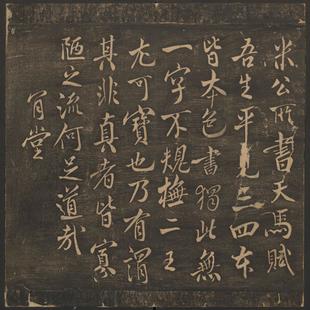 米公所書天馬賦
吾生平見三四本
皆本色書獨此無
一字不規橅二王
尤可寶也乃有謂
其非真者皆寡
陋之流何足道哉
肯堂